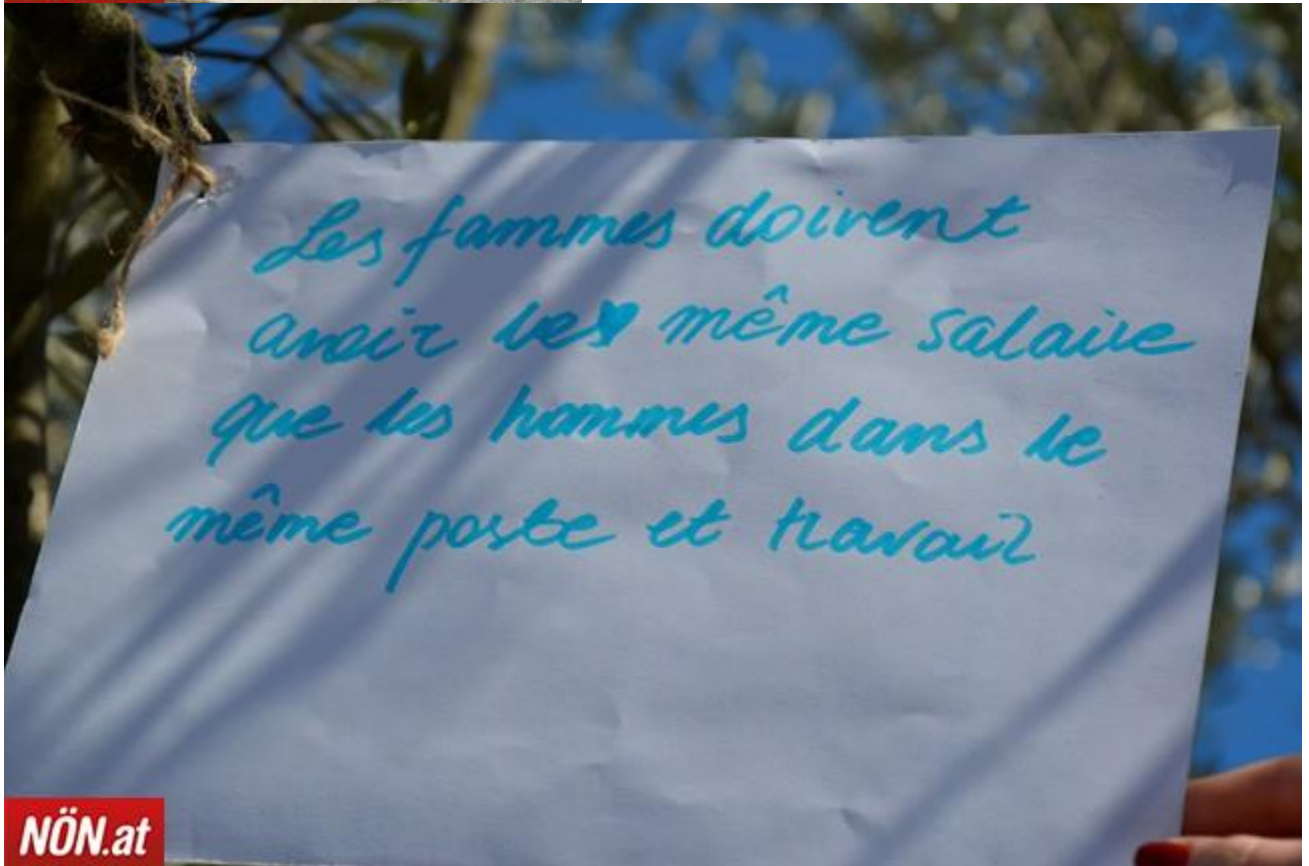 Les fammes doivent
avoir le même salaire
que les hommes dans le
même poste et travail
NÖN.at